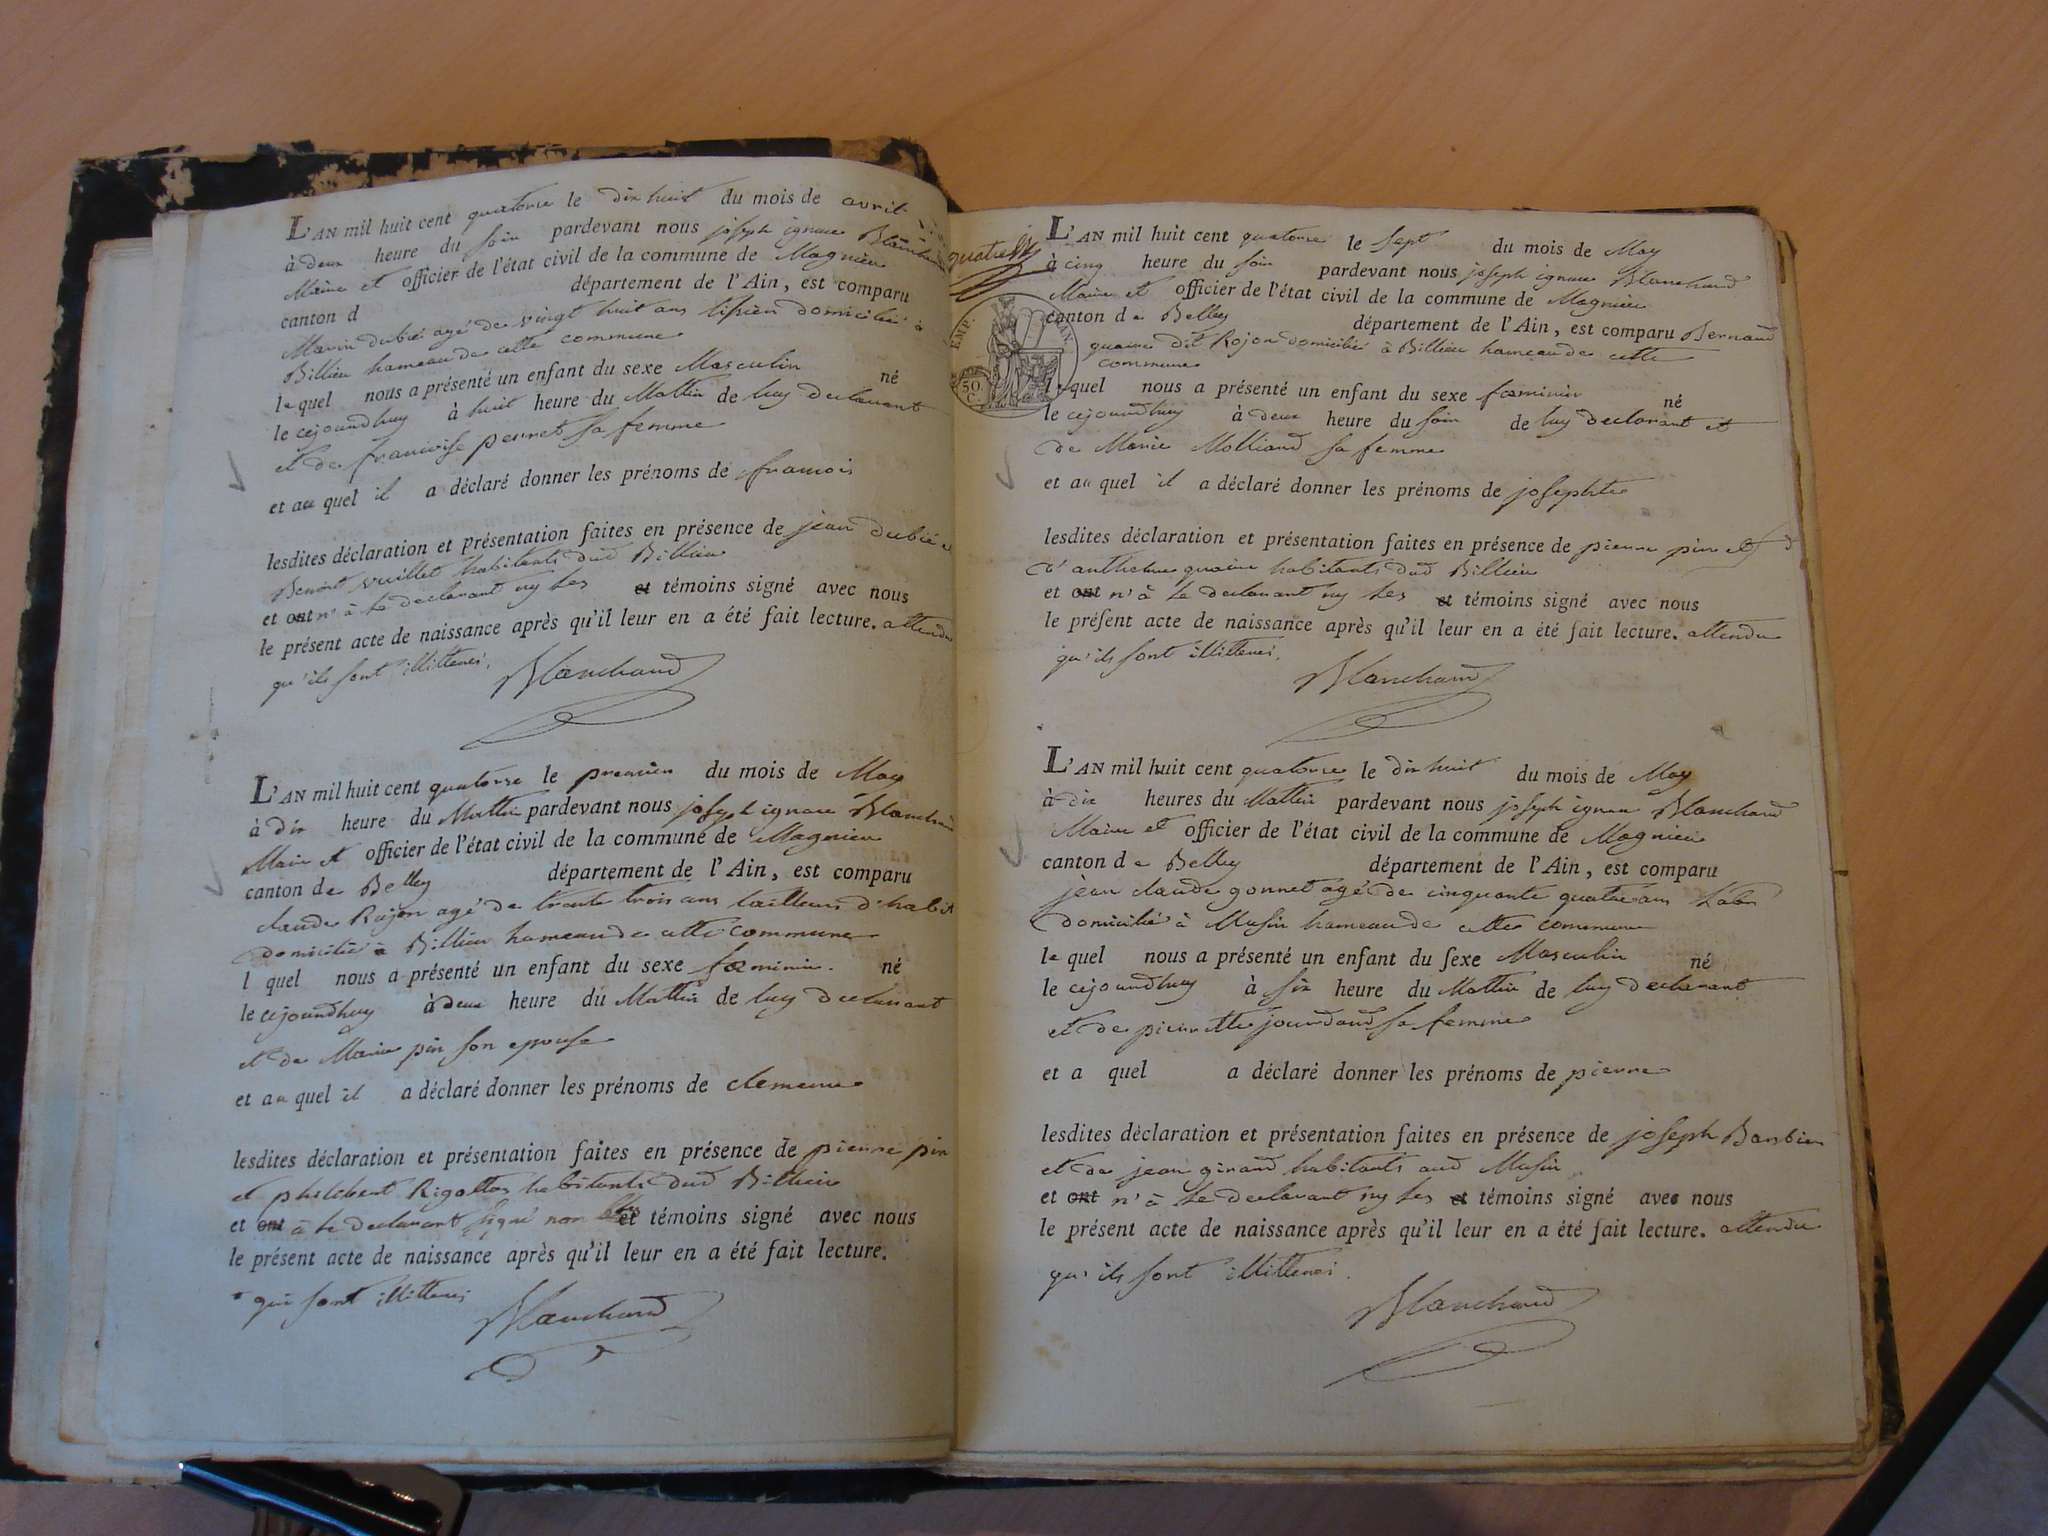 L'AN mil huit cent quatorse le dix huit du mois de avril
à deux heure du soir pardevant nous joseph ignace Blanchard
Maire et officier de l'état civil de la commune de Magnieu
canton d département de l'Ain, est comparu
Marin dubié agé de vingt huit ans domicilié à
Billieu hameau de cette commune
le quel nous a présenté un enfant du sexe Masculin né
le cejourdhuy à huit heure du Mattin de luy declarant
et de francoise pernet sa femme
et au quel il a déclaré donner les prénoms de francois
lesdites déclaration et présentation faites en présence de jean dubié et
Benoit vuillet habitants dud Billieu
et ont n'à le declarant ny les et témoins signé avec nous
le présent acte de naissance après qu'il leur en a été fait lecture. attendu
qu'ils sont illitteres.
Blanchard
L'AN mil huit cent quatorse le premier du mois de May
à dix heure du Mattin pardevant nous joseph ignace Blanchard
Maire et officier de l'état civil de la commune de Magnieu
canton de Belley département de l'Ain, est comparu
claude Rojon agé de trente trois ans tailleur d'habit
domicilié à Billieu hameau de cette commune
l quel nous a présenté un enfant du sexe fœminin. né
le cejourdhuy à deux heure du Mattin de luy declarant
et de Marie pin son epouse
et au quel il a déclaré donner les prénoms de clemence
lesdites déclaration et présentation faites en présence de pierre pin
et philibert Rigottas habitants dud Billieu
et ont à le declarant signé non les et témoins signé avec nous
le présent acte de naissance après qu'il leur en a été fait lecture.
qui sont illitteres
Blanchard
quatre
EMP.
50.
C.
L'AN mil huit cent quatorse le sept du mois de May
à cinq heure du soir pardevant nous joseph ignace Blanchard
Maire et officier de l'état civil de la commune de Magnieu
canton de Belley département de l'Ain, est comparu Bernard
quaine dit Rojon domicilié à Billieu hameau de cette
commune
le quel nous a présenté un enfant du sexe fœminin né
le cejourdhuy à deux heure du soir de luy declarant et
de Marie Molliard sa femme
et au quel il a déclaré donner les prénoms de josephte
lesdites déclaration et présentation faites en présence de pierre pin et
d'anthelme quaine habitants dud Billieu
et ont n'à le declarant ny les et témoins signé avec nous
le présent acte de naissance après qu'il leur en a été fait lecture. attendu
qu'ils sont illitteres.
Blanchard
L'AN mil huit cent quatorse le dix huit du mois de May
à dix heures du Mattin pardevant nous joseph ignace Blanchard
Maire et officier de l'état civil de la commune de Magnieu
canton de Belley département de l'Ain, est comparu
jean claude gonnet agé de cinquante quatre ans Labr
domicilié à Musin hameau de cette commune
le quel nous a présenté un enfant du sexe Masculin né
le cejourdhuy à six heure du Mattin de luy declarant
et de pierrette jourdand sa femme
et a quel a déclaré donner les prénoms de pierre
lesdites déclaration et présentation faites en présence de joseph Barbier
et de jean girard habitants aud Musin
et ont n'à le declarant ny les et témoins signé avec nous
le présent acte de naissance après qu'il leur en a été fait lecture. attendu
qu'ils sont illitteres.
Blanchard